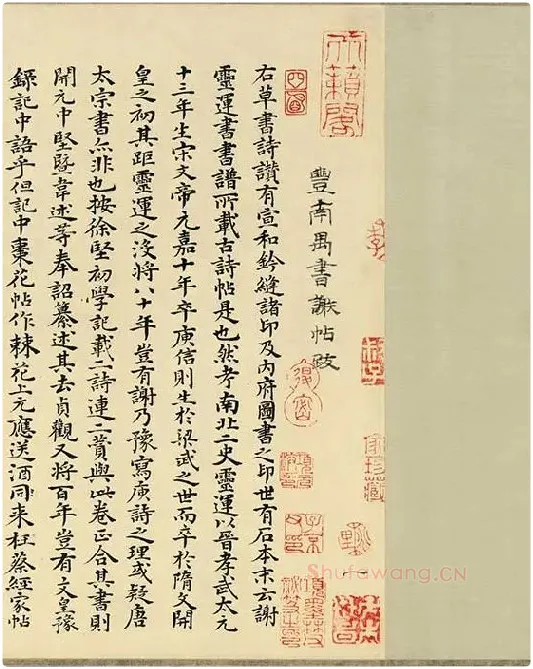 天籟閣
豐南禺書謝帖跋
右草書詩讚有宣和鈐縫諸印及內府圖書之印世有石本末云謝
靈運書書譜所載古詩帖是也然考南北二史靈運以晉孝武太元
十三年生宋文帝元嘉十年卒庾信則生於梁武之世而卒於隋文開
皇之初其距靈運之沒將八十年豈有謝乃豫寫庾詩之理或疑唐
太宗書亦非也按徐堅初學記載二詩連二贊與此卷正合其書則
開元中堅暨韋述等奉詔纂述其去貞觀又將百年豈有文皇豫
錄記中語乎但記中棗花帖作棘花上元應送酒同来枉蔡經家帖
家珍藏
子京父印
Shufawang.CN